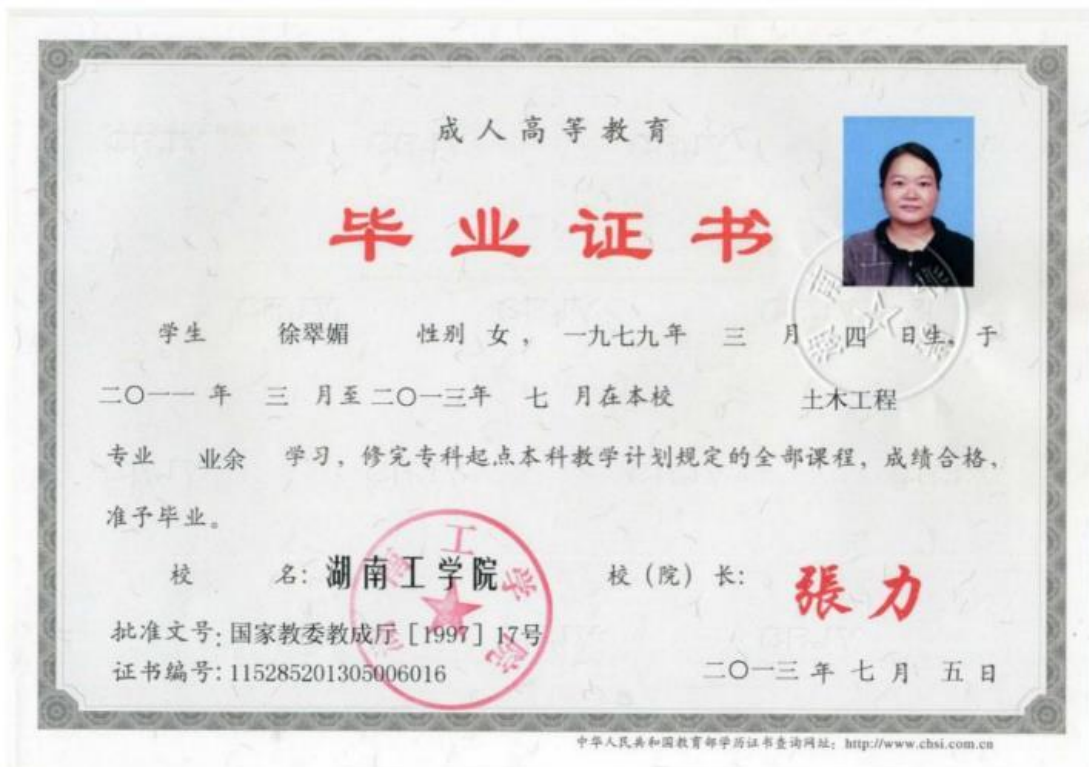 成人高等教育
毕业证书
学生 徐翠媚 性别 女， 一九七九年 三 月 四 日生，于
二〇一一 年 三 月至 二〇一三年 七 月在本校 土木工程
专业 业余 学习，修完专科起点本科教学计划规定的全部课程，成绩合格，
准予毕业。
校 名：湖南工学院 校（院）长：張力
批准文号：国家教委教成厅［1997］17号
证书编号：115285201305006016 二〇一三 年 七 月 五 日
湖南工学院
中华人民共和国教育部学历证书查询网址：http://www.chsi.com.cn